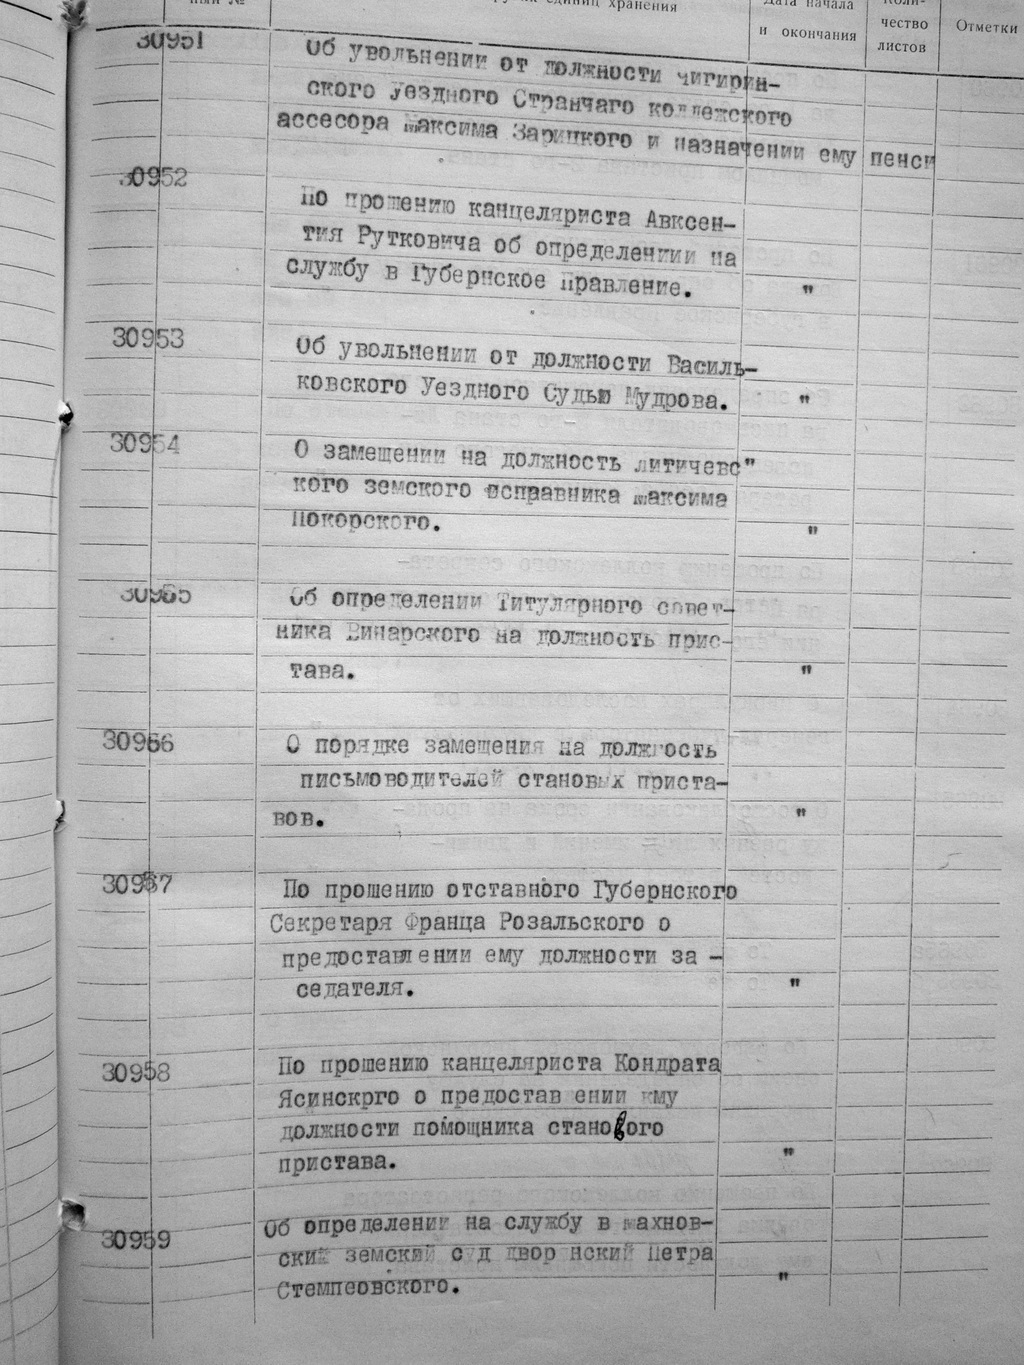 хранения
Дата начала
и окончания
чество
листов
Отметки
30951
Об увольнении от должности Чигирин-
ского Уездного Странчаго коллежского
ассесора Максима Зарицкого и назначении ему пенси
30952
По прошению канцеляриста Авксен-
тия Рутковича об определении на
службу в Губернское Правление. "
30953
Об увольнении от должности Василь-
ковского Уездного Судью Мудрова. "
30954
О замещении на должность литичевс"
кого земского исправника Максима
Покорского. "
30955
Об определении Титулярного совет-
ника Винарского на должность прис-
тава. "
30956
О порядке замещения на должность
письмоводителей становых приста-
вов. "
30957
По прошению отставного Губернского
Секретаря Франца Розальского о
предоставлении ему должности за -
седателя. "
30958
По прошению канцеляриста Кондрата
Ясинскрго о предостав ении ему
должности помощника станового
пристава. "
30959
Об определении на службу в махнов-
ский земский с д двор нский Петра
Стемпеовского. "